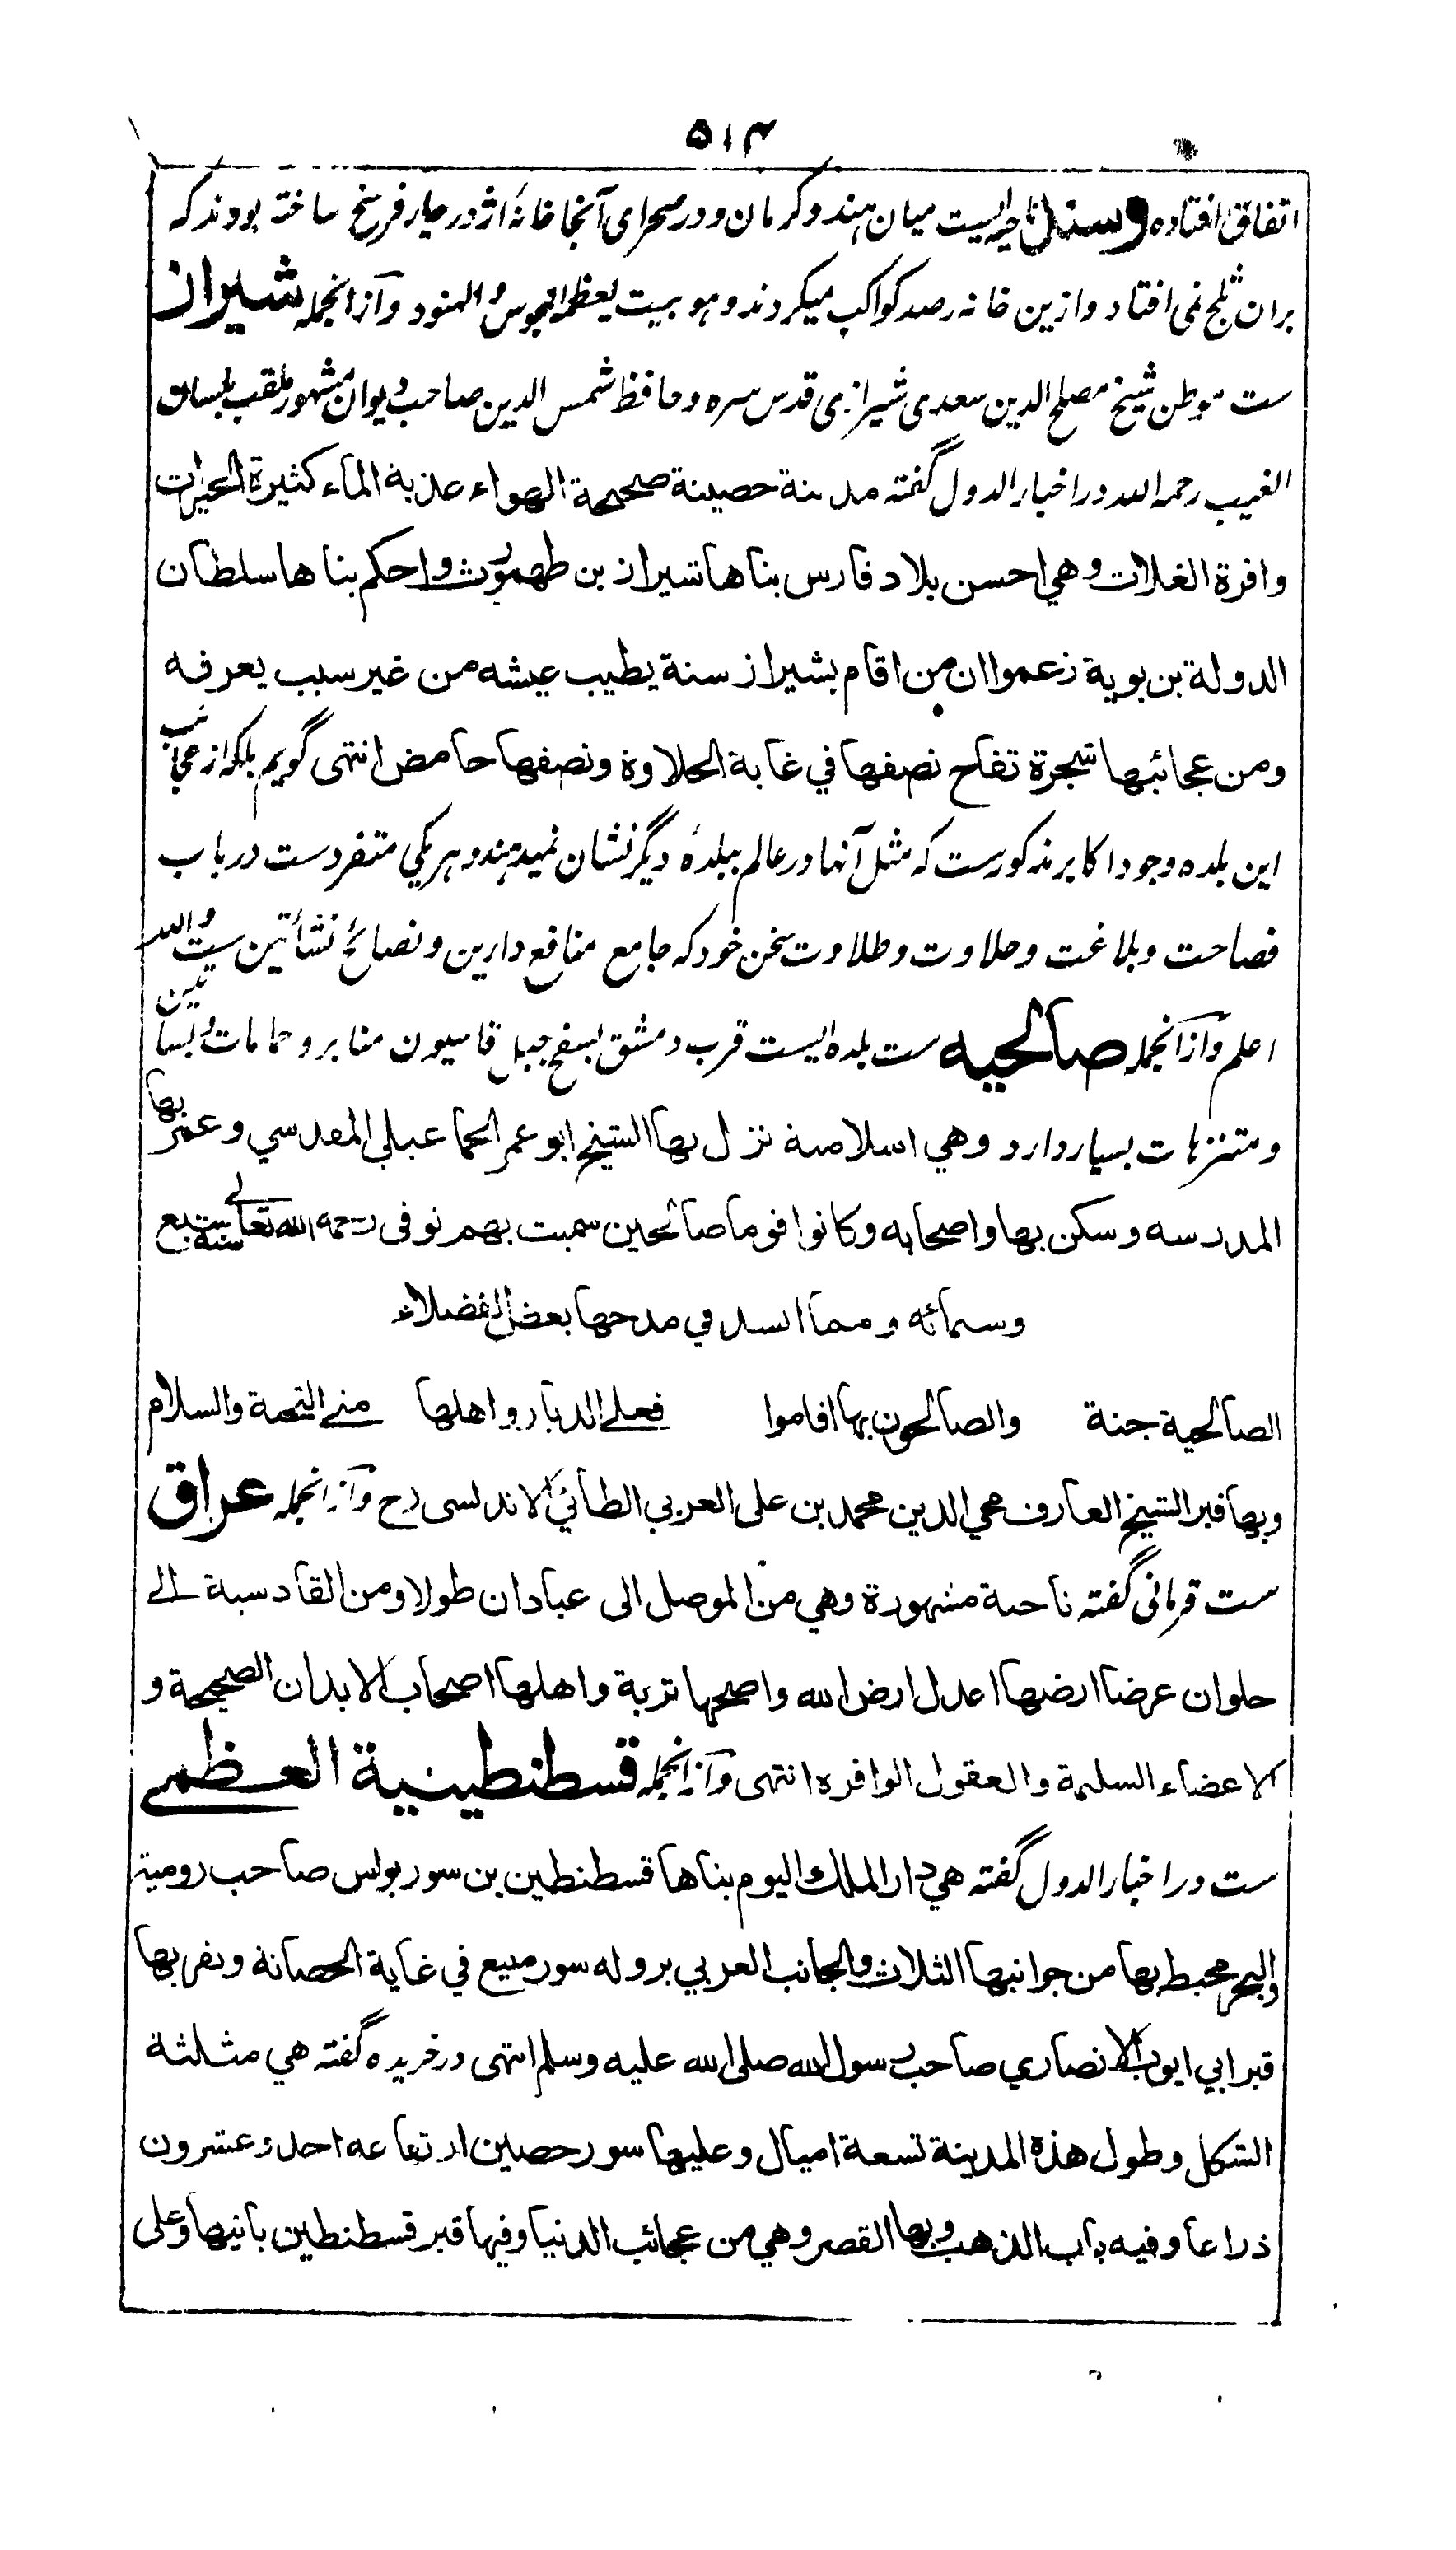 ۵۱۴
اتفاق افتاده و سند ناحیه ایست میان هند و کرمان و در صحرای آنجا خانهٔ از زر در چار فرسخ ساخته بودند که
بران ثلج نمی افتاد و ازین خانه رصد کواکب میکردند و هو بیت یعظمه المجوس و الهنود و ازانجمله شیراز
ست موطن شیخ مصلح الدین سعدی شیرازی قدس سره و حافظ شمس الدین صاحب دیوان مشهور ملقب بلسان
الغیب رحمه الله در اخبار الدول گفته مدينة حصينة صحيحة الهواء عذبة الماء كثيرة الخيرات
وافرة الغلات وهي احسن بلاد فارس بناها شيراز بن طهمورث واحكم بناها سلطان
الدولة بن بوية زعموا ان من اقام بشيراز سنة يطيب عيشه من غير سبب يعرفه
ومن عجائبها شجرة تفاح نصفها في غاية الحلاوة ونصفها حامض انتهى گویم بلکه از عجائب
این بلده وجود اکابر مذکورست که مثل آنها در عالم ببلدهٔ دیگر نشان نمیدهند و هر یکی متفردست در باب
فصاحت و بلاغت و حلاوت و طلاوت سخن خود که جامع منافع دارین و نصائح نشأتین ست والله
اعلم و ازانجمله صالحیه ست بلده ایست قرب دمشق بسفح جبل قاسیون منابر و حمامات و بساتین
و متنزهات بسیار دارد وهي اسلامية نزل بها الشيخ ابو عمر الجماعيلي المقدسي وعمر بها
المدرسه وسكن بها واصحابه وكانوا قوما صالحين سميت بهم توفى رحمه الله تعالے سنة سبع
وستمائه ومما انشد في مدحها بعض الفضلاء
الصالحية جنة والصالحون بها اقاموا فعلے الديار واهلها منے التحية والسلام
وبها قبر الشيخ العارف محي الدين محمد بن على العربي الطائي الاندلسى رح و ازانجمله عراق
ست قرمانی گفته ناحية مشهورة وهي من الموصل الى عبادان طولا ومن القادسية الے
حلوان عرضا ارضها اعدل ارض الله واصحها تربة واهلها اصحاب الابدان الصحيحة و
الاعضاء السليمة والعقول الوافره انتهى و ازانجمله قسطنطينية العظمے
ست در اخبار الدول گفته هي دار الملك اليوم بناها قسطنطين بن سوربولس صاحب رومية
والبحر محيط بها من جوانبها الثلاث والجانب الغربي بر وله سور منيع في غاية الحصانة وبقربها
قبر ابي ايوب الانصاري صاحب رسول الله صلى الله عليه وسلم انتهى در خریده گفته هي مثلثة
الشكل وطول هذه المدينة تسعة اميال وعليها سور حصين ارتفاعه احد وعشرون
ذراعا وفيه باب الذهب وبها القصر وهي من عجائب الدنيا وفيها قبر قسطنطين بانيها وعلى